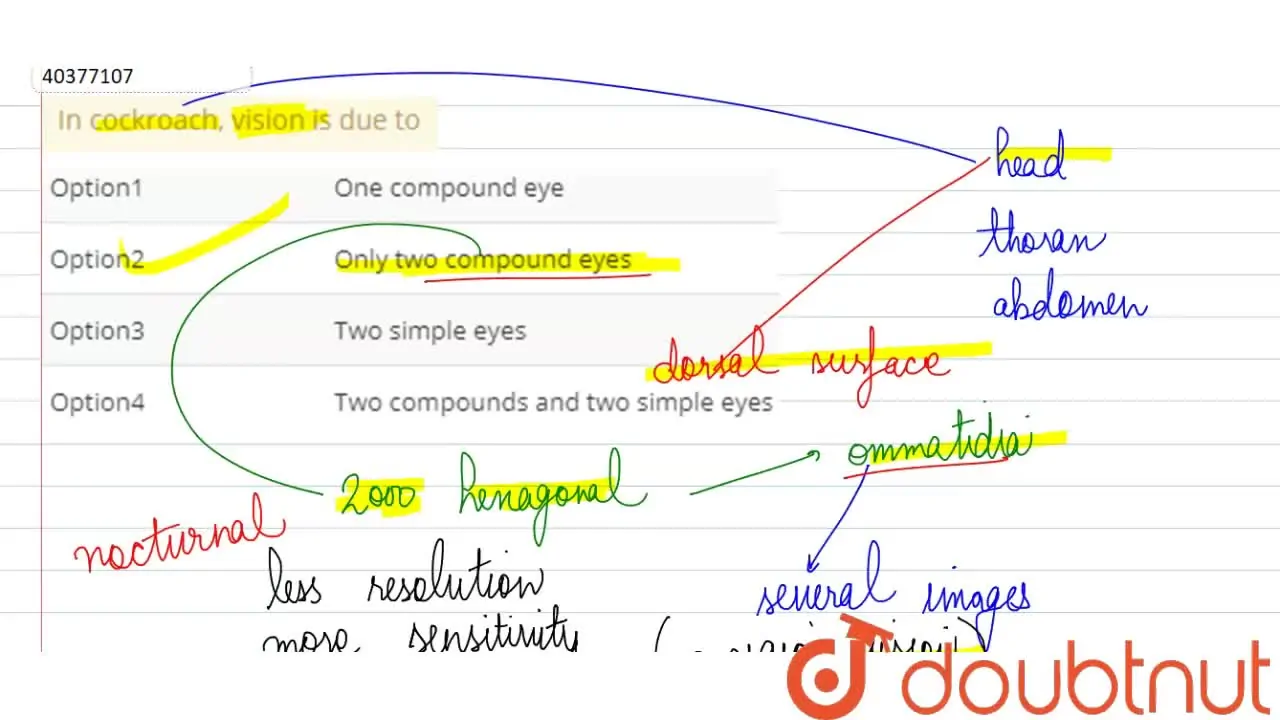 40377107
In cockroach, vision is due to
Option1 One compound eye
Option2 Only two compound eyes
Option3 Two simple eyes
Option4 Two compounds and two simple eyes
head
thoran
abdomen
dorsal surface
ommatidia
2000 henagonal
nocturnal
less resolution
more sensitivity
several images
doubtnut